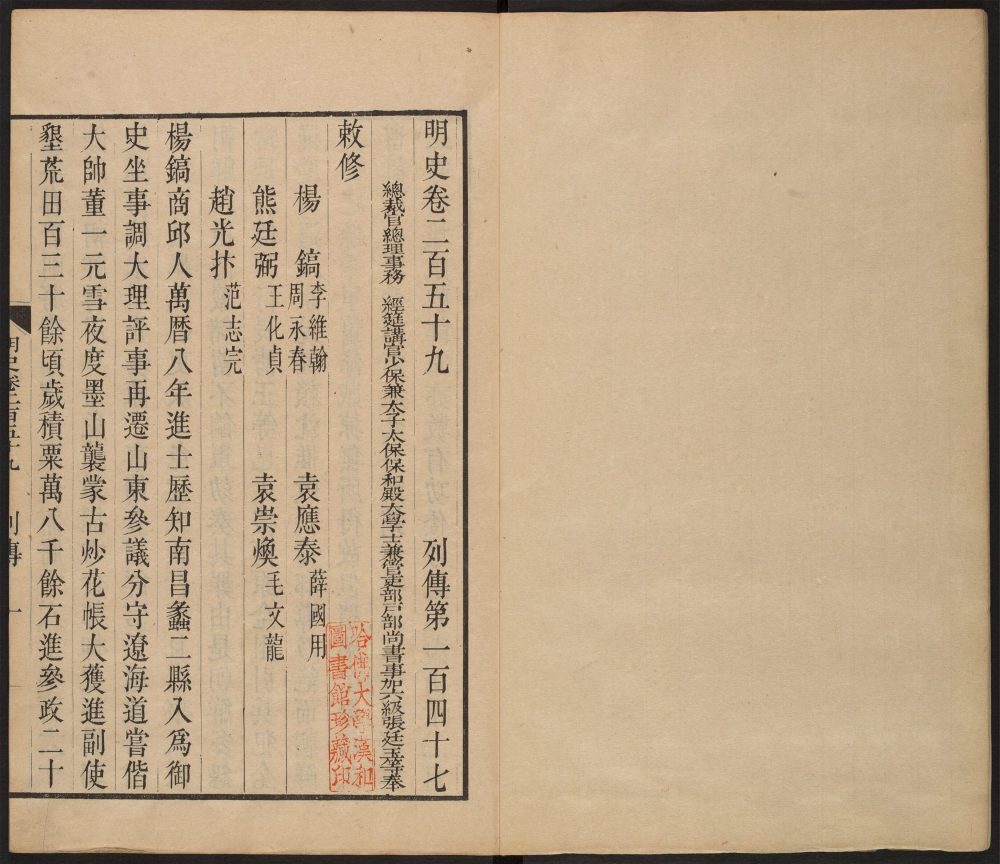 明史卷二百五十九 列傳第一百四十七
總裁官總理事務 經筵講官少保兼太子太保保和殿大學士兼管吏部戶部尚書事加六級張廷玉等奉
敕修
楊 鎬 李維翰 周永春 袁應泰 薛國用
熊廷弼 王化貞 袁崇煥 毛文龍
趙光抃 范志完
楊鎬商邱人萬曆八年進士歷知南昌蠡二縣入爲御
史坐事調大理評事再遷山東參議分守遼海道嘗偕
大帥董一元雪夜度墨山襲蒙古炒花帳大獲進副使
墾荒田百三十餘頃歲積粟萬八千餘石進參政二十
明史卷二百五十九 列傳 一
哈佛大學漢和
圖書館珍藏印